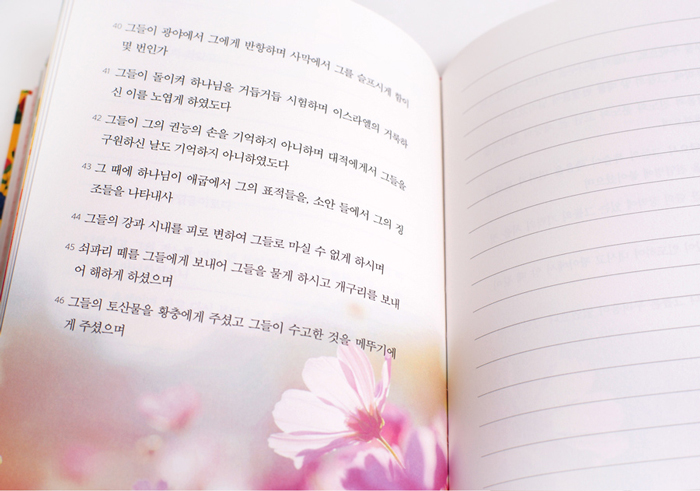 40 그들이 광야에서 그에게 반항하며 사막에서 그를 슬프시게 함이
몇 번인가
41 그들이 돌이켜 하나님을 거듭거듭 시험하며 이스라엘의 거룩하
신 이를 노엽게 하였도다
42 그들이 그의 권능의 손을 기억하지 아니하며 대적에게서 그들을
구원하신 날도 기억하지 아니하였도다
43 그 때에 하나님이 애굽에서 그의 표적들을, 소안 들에서 그의 징
조들을 나타내사
44 그들의 강과 시내를 피로 변하여 그들로 마실 수 없게 하시며
45 쇠파리 떼를 그들에게 보내어 그들을 물게 하시고 개구리를 보내
어 해하게 하셨으며
46 그들의 토산물을 황충에게 주셨고 그들이 수고한 것을 메뚜기에
게 주셨으며